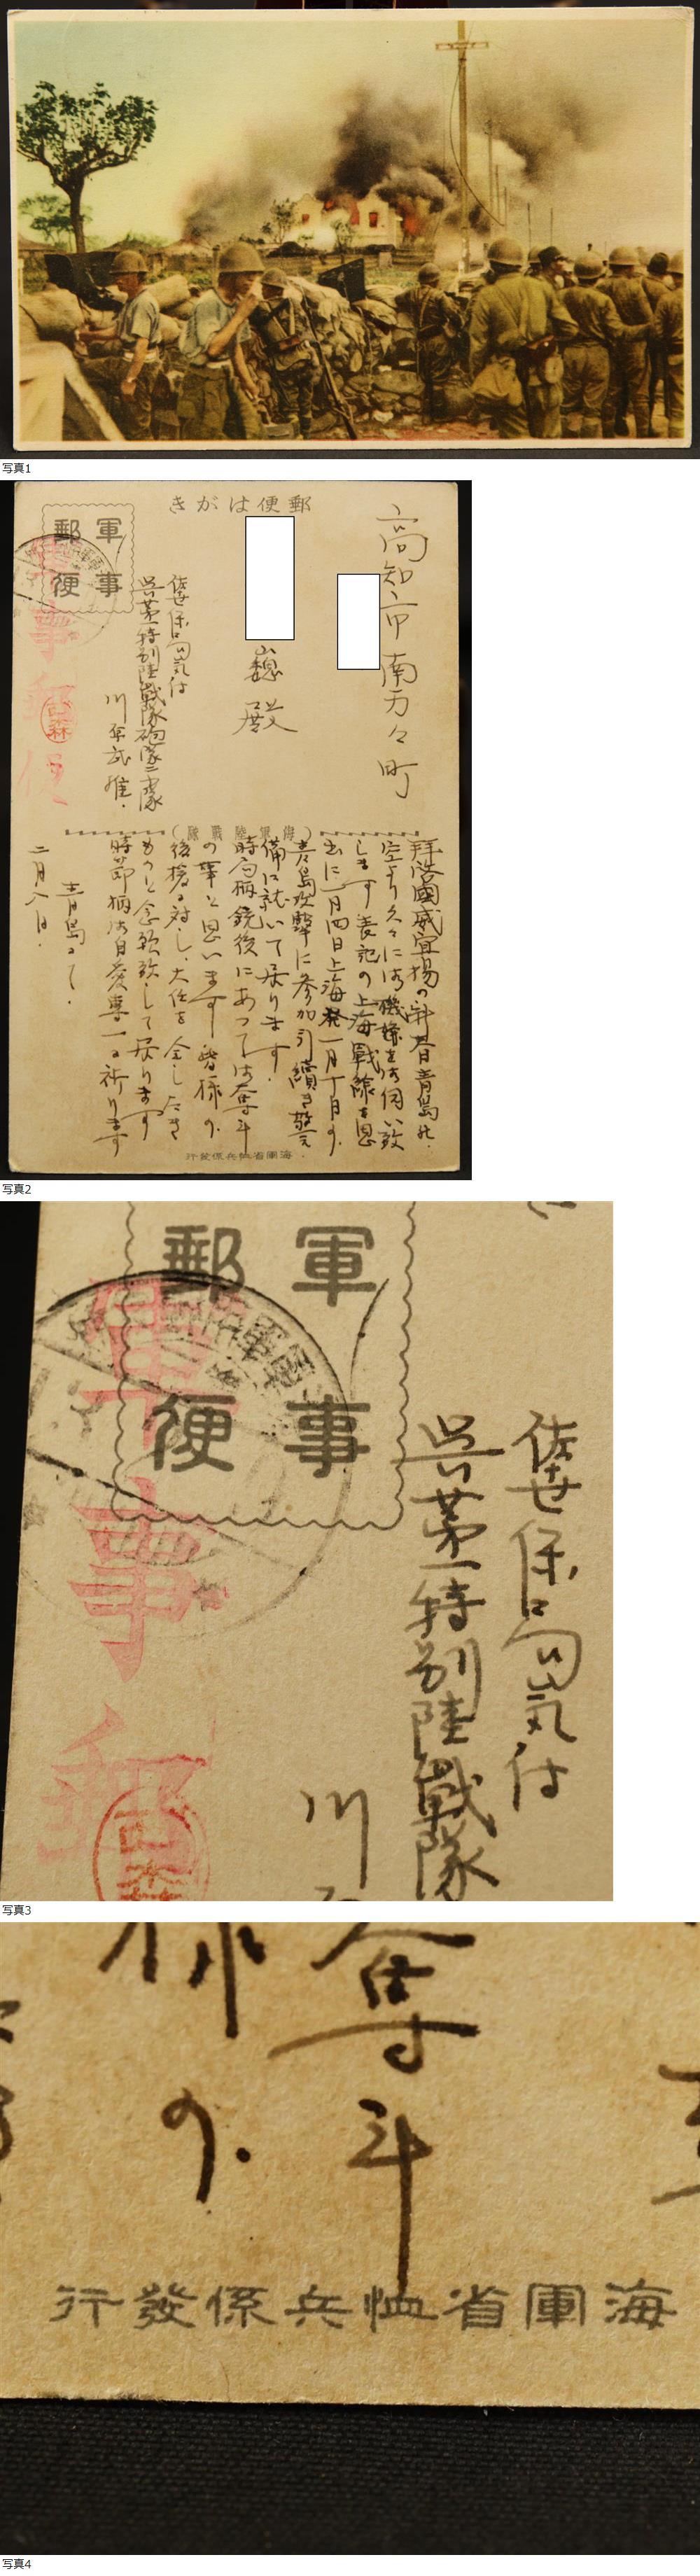 写真1
郵便はがき
軍事
郵便
軍事郵便
高知市南万々町
巍殿
佐世保局気付
呉第一特別陸戦隊砲隊二小隊
川平武雄.
(海軍陸戦隊)
拝啓國威宣揚の新春青島の.
空より久々に御機嫌を御伺い致
します表記の上海戰線を思
出に一月四日上海発一月十日の.
青島攻撃に参加引續き警
備に就いて居ります.
時局柄銃後にあつては奮斗
の事と思います皆様の.
後援に対し、大任を全したき
ものと念願致して居ります
時節柄御自愛専一に祈ります
青島にて.
二月八日.
海軍省恤兵係發行
写真2
郵軍
便事
軍事郵
佐世保局気付
呉第一特別陸戦隊
川
写真3
奮斗
の.
海軍省恤兵係發行
写真4